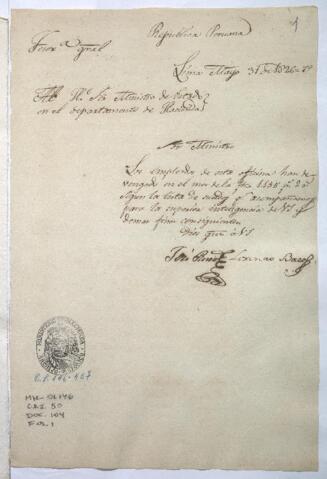 1
Republica Peruana
Tesor.ª gral
Lima Mayo 31 de 1826
Al H. Sr. Ministro de Estado
en el departamento de Hacienda
Sr. Ministro
Los empleados de esta oficina han de-
vengado en el mes de la fha 1135 p.s 2 r.s
segun la lista de sueldos q.e acompañamos
para la superior inteligencia de VS. y
demas fines consiguientes
Dios gue. á VS.
José Lorenzo
O.L. 146-467
MH-OL146
CAJ. 50
DOC. 104
FOL. 1